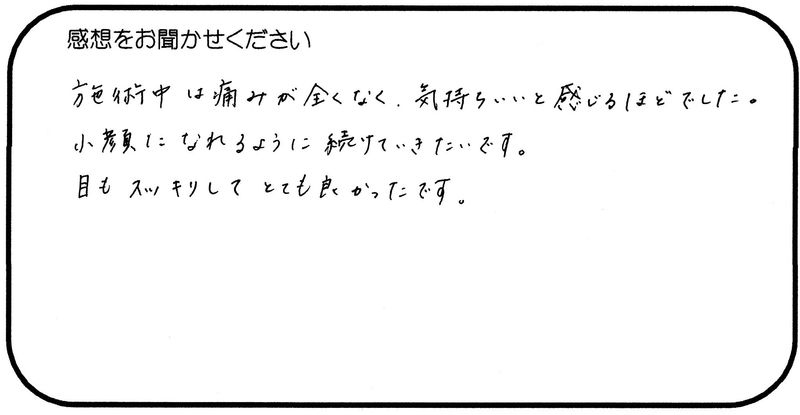 感想をお聞かせください
施術中は痛みが全くなく、気持ちいいと感じるほどでした。
小顔になれるように続けていきたいです。
目もスッキリしてとても良かったです。